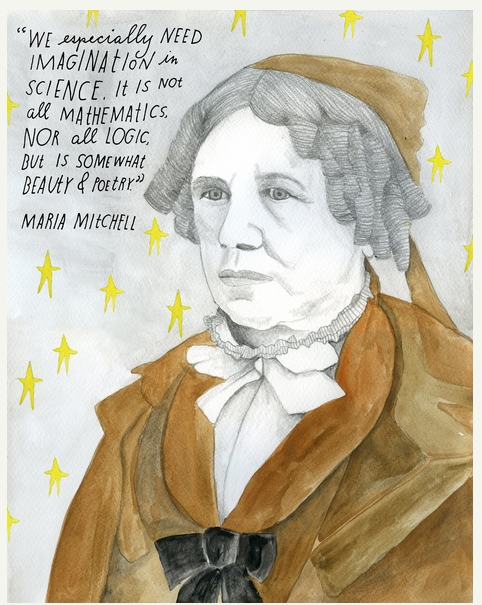 “WE especially NEED
IMAGINATION in
SCIENCE. It IS NOT
all MATHEMATICS,
NOR all LOGIC,
BUT IS SOMEWHAT
BEAUTY & POETRY”
MARIA MITCHELL